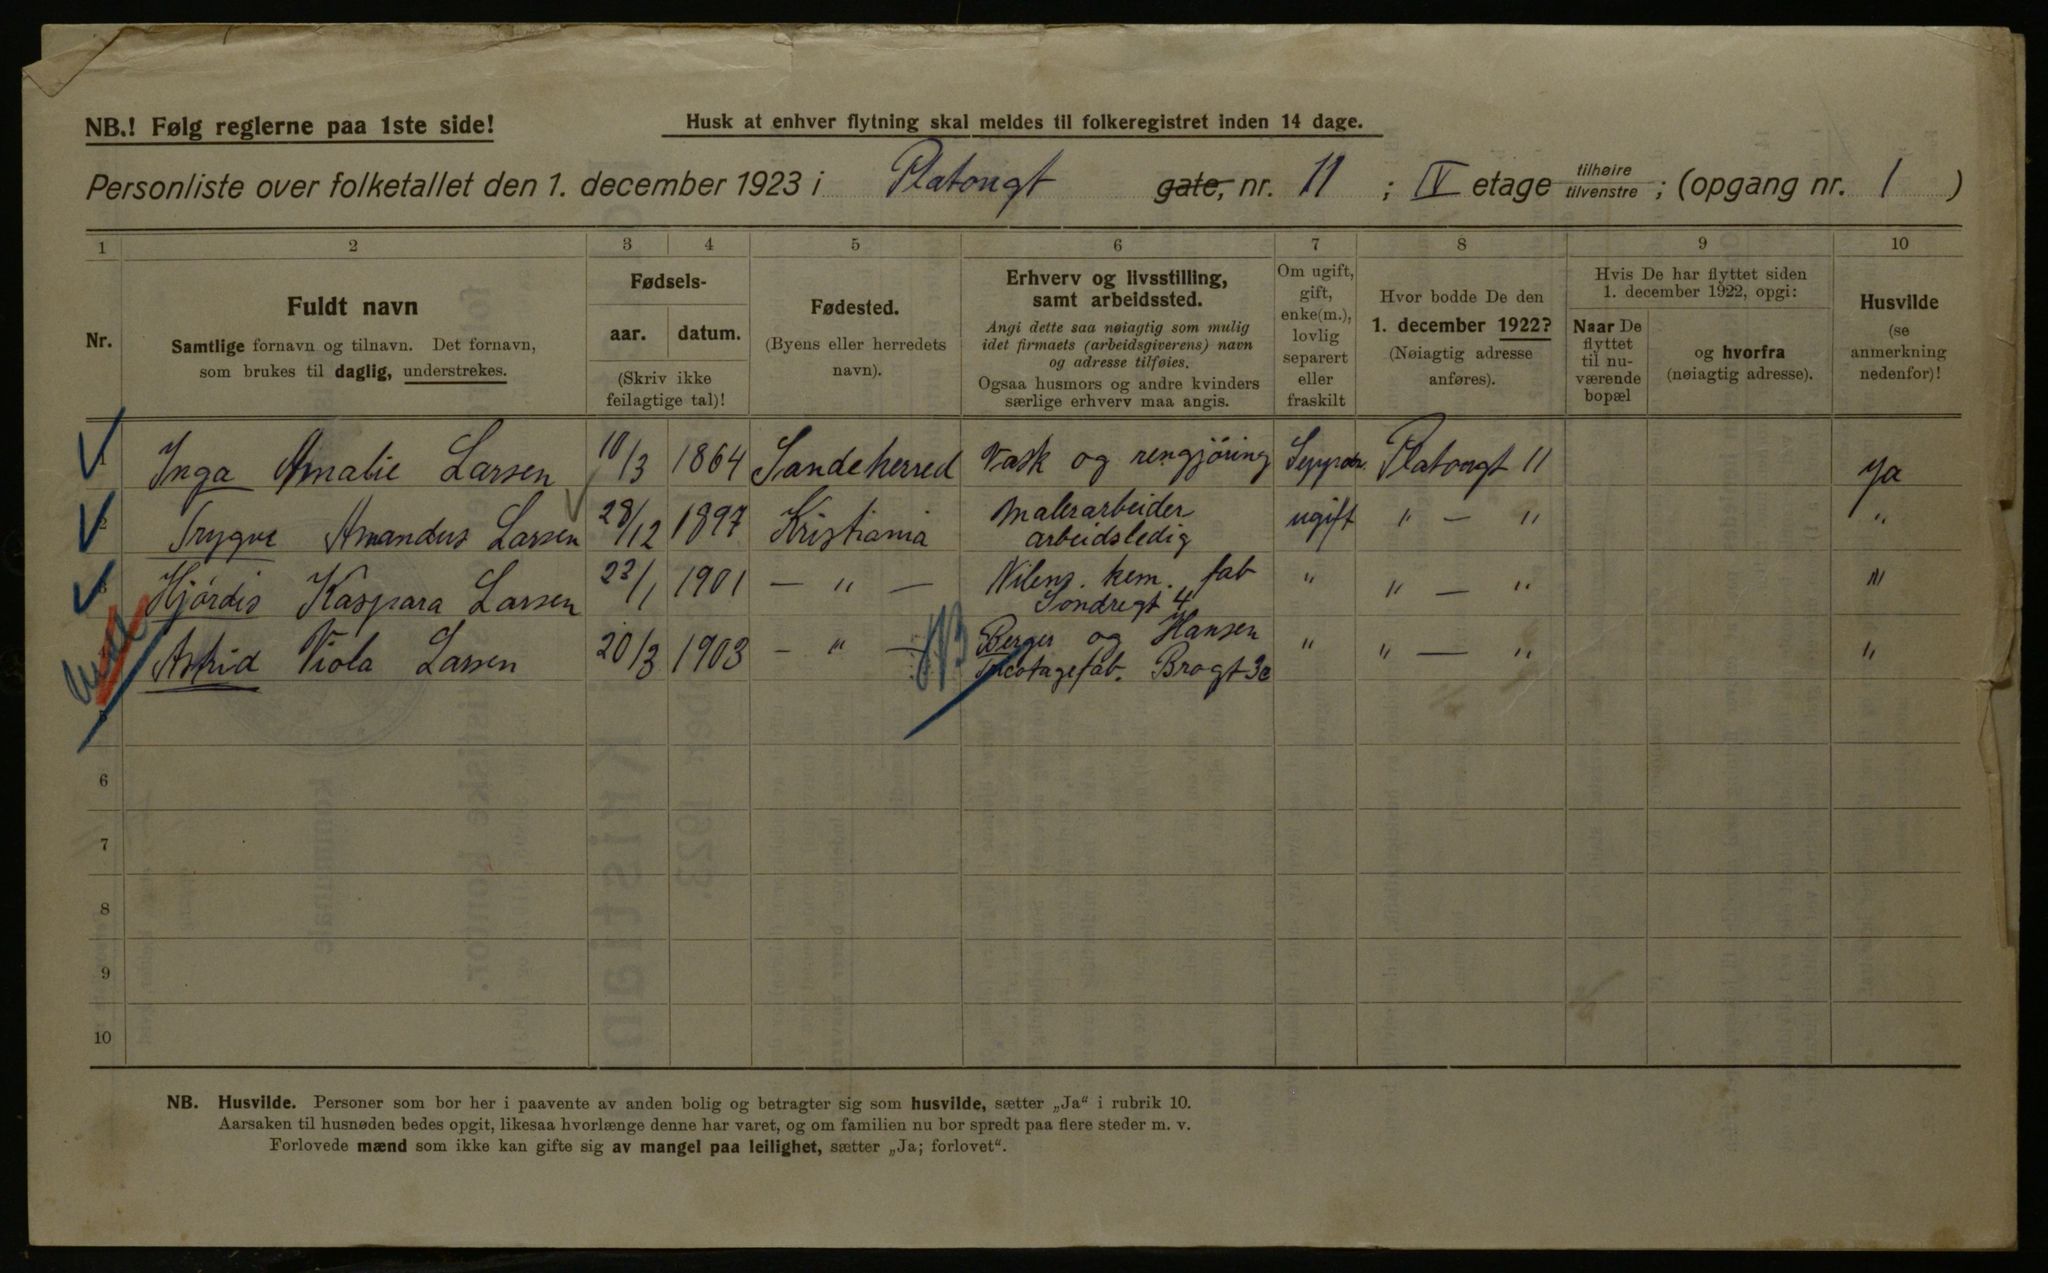 NB.! Følg reglerne paa 1ste side!
Husk at enhver flytning skal meldes til folkeregistret inden 14 dage.
Personliste over folketallet den 1. december 1923 i Platougt gate, nr. 11 ; IV etage tilhøire tilvenstre ; (opgang nr. 1 )
1 2 3 4 5 6 7 8 9 10
Nr.
Fuldt navn
Samtlige fornavn og tilnavn. Det fornavn,
som brukes til daglig, understrekes.
Fødsels-
aar. datum.
(Skriv ikke
feilagtige tal)!
Fødested.
(Byens eller herredets
navn).
Erhverv og livsstilling,
samt arbeidssted.
Angi dette saa nøiagtig som mulig
idet firmaets (arbeidsgiverens) navn
og adresse tilføies.
Ogsaa husmors og andre kvinders
særlige erhverv maa angis.
Om ugift,
gift,
enke(m.),
lovlig
separert
eller
fraskilt
Hvor bodde De den
1. december 1922?
(Nøiagtig adresse
anføres).
Hvis De har flyttet siden
1. december 1922, opgi:
Naar De
flyttet
til nu-
værende
bopæl
og hvorfra
(nøiagtig adresse).
Husvilde
(se
anmerkning
nedenfor)!
Inga Amalie Larsen 10/3 1864 Sandeherred Vask og rengjøring Platougt 11 Ja
2 Trygve Amandus Larsen 28/12 1897 Kristiania Malerarbeider ugift " — " "
arbeidsledig
3 Hjørdis Kaspara Larsen 23/1 1901 — " — kem. fab " " — " "
4
4 Astrid Viola Larsen 20/3 1903 — " — NB Berger og Hansen " " — " "
Tricotagefab. Brogt 3c
5
6
7
8
9
10
NB. Husvilde. Personer som bor her i paavente av anden bolig og betragter sig som husvilde, sætter „Ja“ i rubrik 10.
Aarsaken til husnøden bedes opgit, likesaa hvorlænge denne har varet, og om familien nu bor spredt paa flere steder m. v.
Forlovede mænd som ikke kan gifte sig av mangel paa leilighet, sætter „Ja; forlovet“.